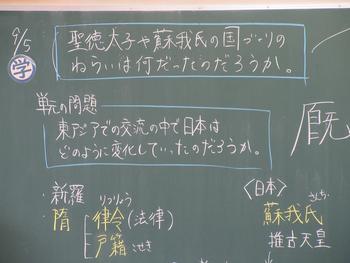 9/5
学
聖徳太子や蘇我氏の国づくりの
ねらいは何だったのだろうか。
単元の問題
東アジアでの交流の中で日本は
どのように変化していったのだろうか。
厩
・新羅
・隋
りつりょう
律令(法律)
戸籍 こせき
<日本>
蘇我氏
推古天皇